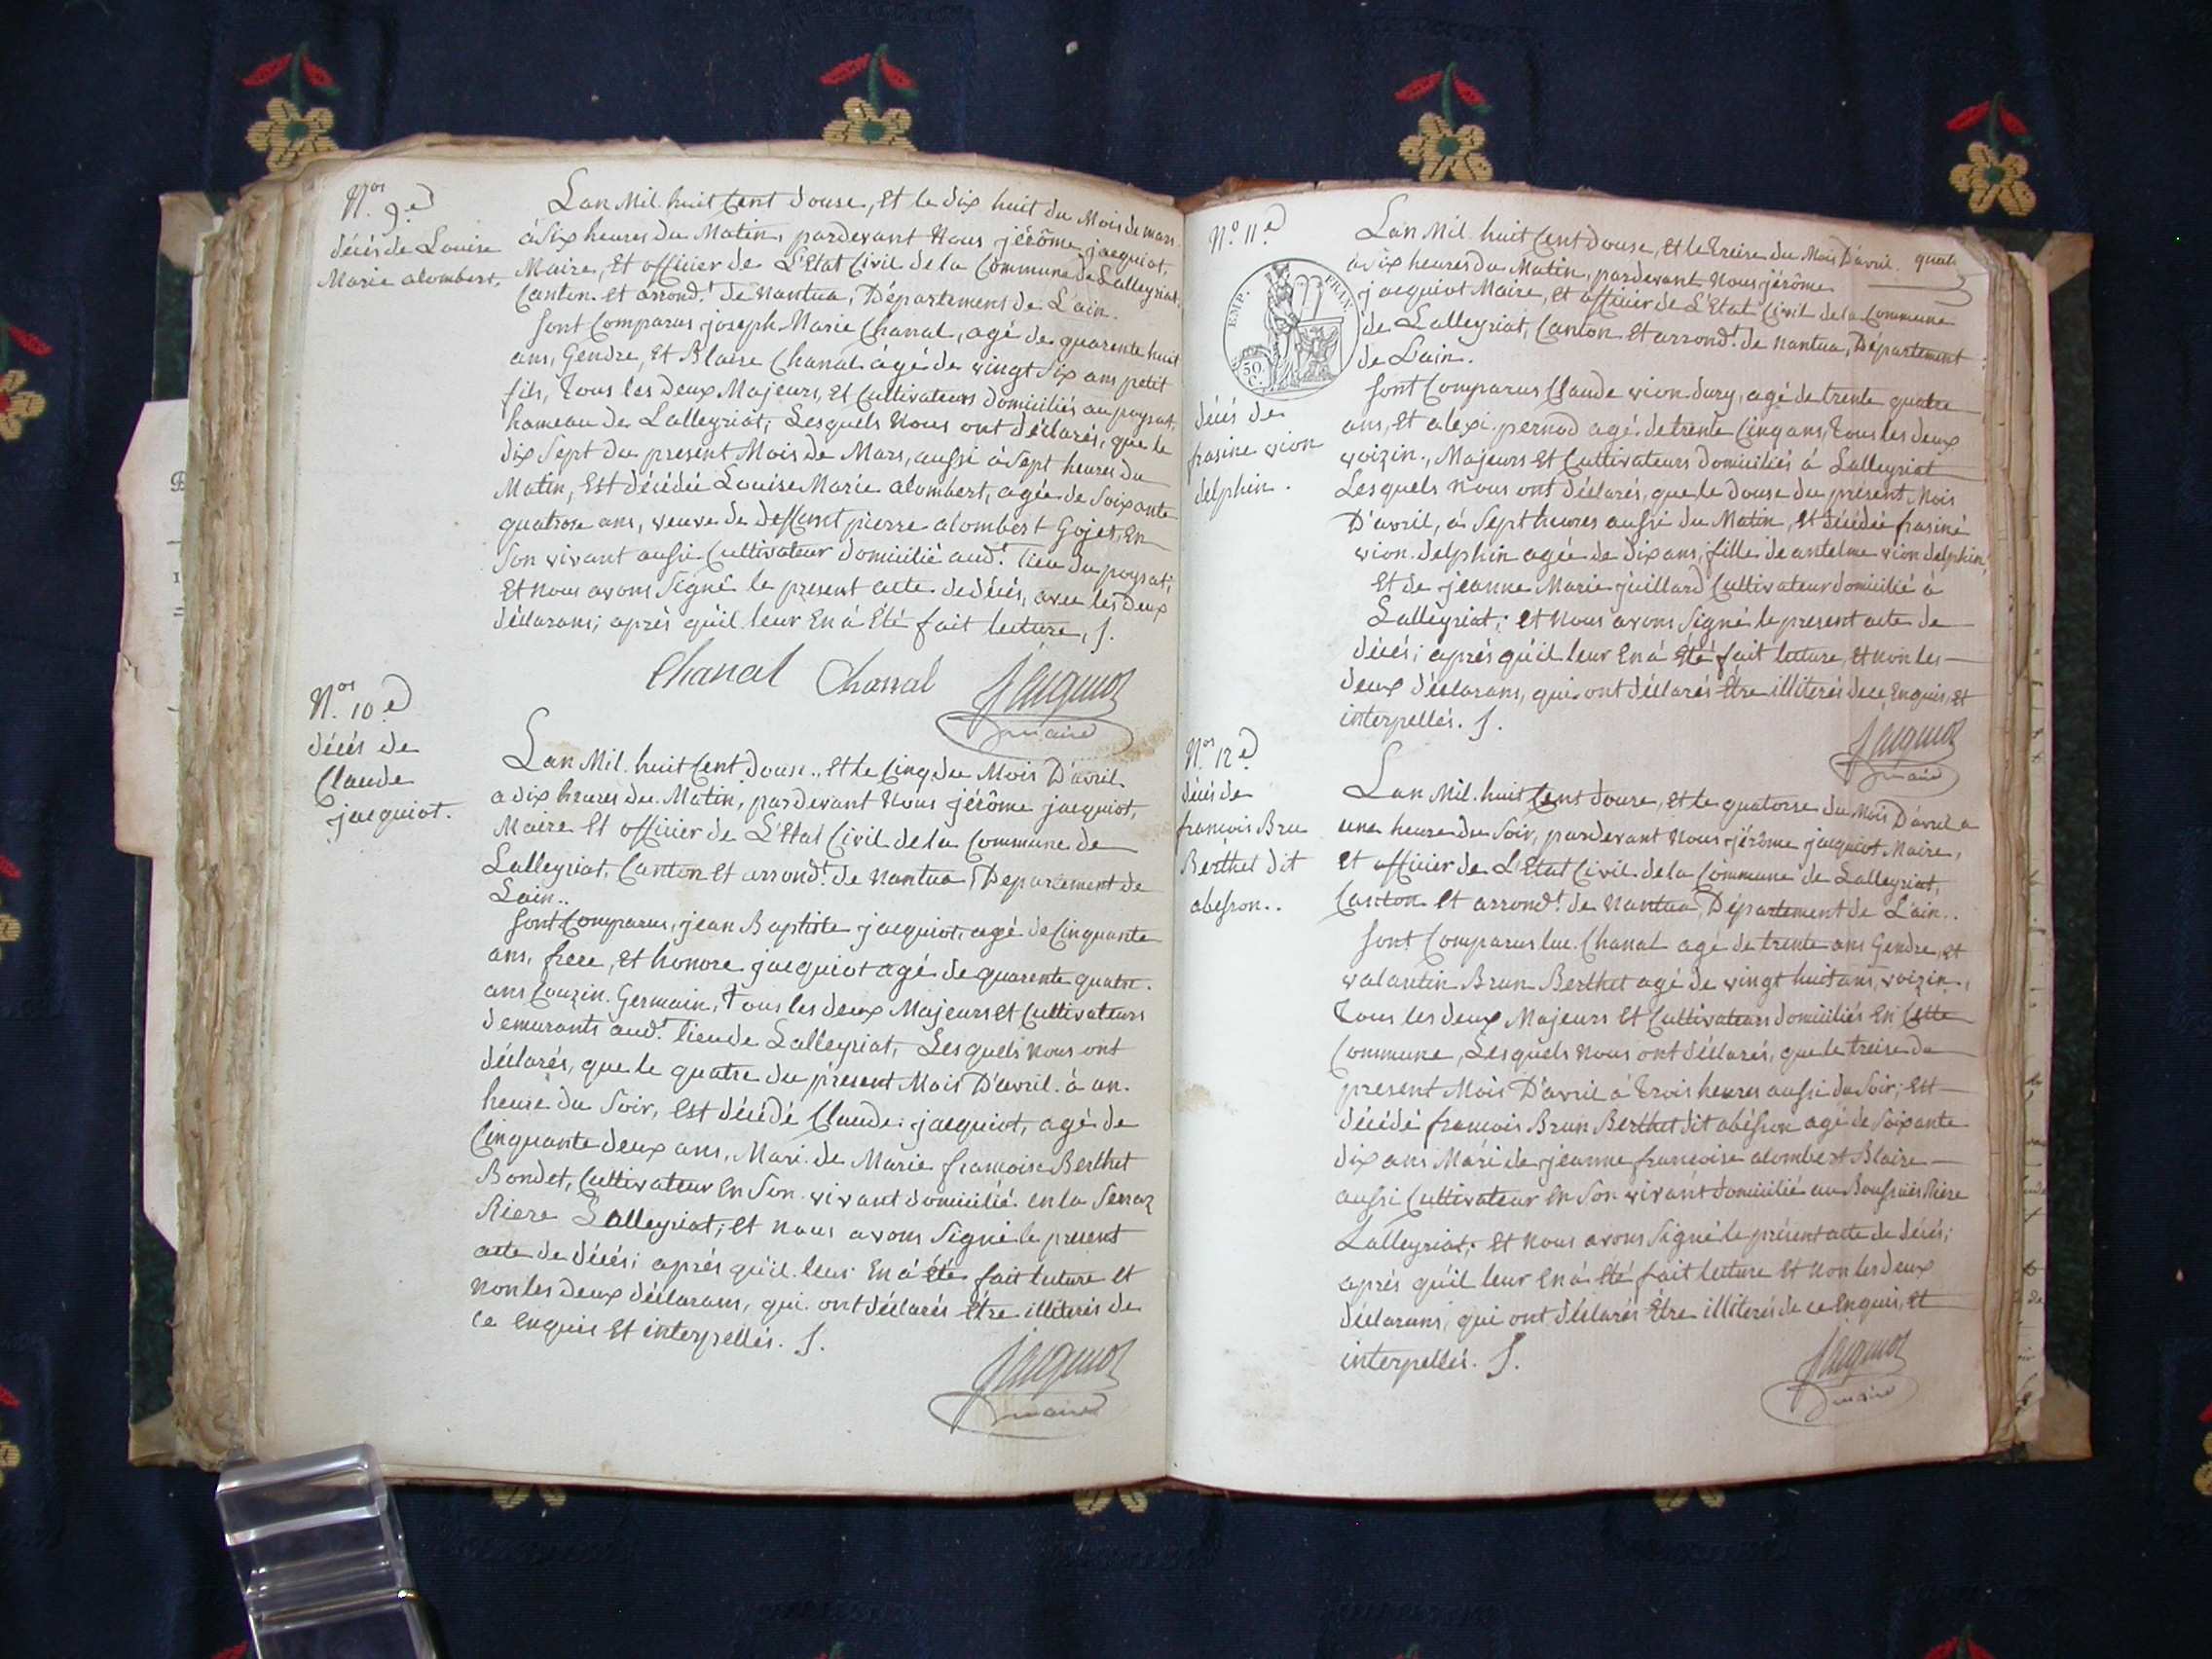 Nos 9.e
décés de Louise
Marie alombert.
Lan Mil. huit Cent douse, Et le dix huit du Mois de mars
à Six heures du Matin, pardevant Nous jérôme jacquiot,
Maire, Et officier de L'Etat Civil de la Commune de Lalleyriat,
Canton. et arrond.t de Nantua, Département de L'ain.
Sont Comparus joseph Marie Chanal, agé de quarente huit
ans, Gendre, Et Blaise Chanal âgé de vingt Six ans petit
fils, Tous les deux Majeurs, Et Cultivateurs domiciliés au poysat,
hameau de Lalleyriat, Lesquels Nous ont déclarés, que le
dix Sept du present Mois de Mars, aussi à Sept heures du
Matin, Est décédée Louise Marie alombert, agée de Soixante
quatrose ans, veuve de deffunt pierre alombert Gojet, En
Son vivant aussi Cultivateur domicilié aud.t lieu du poysat;
Et Nous avons Signé le present acte de décés, avec les deux
déclarans; aprés qu'il leur En à Eté fait lecture, ſ.
Chanal Chanal Jacquiot
maire
Nos 10.e
décés de
Claude
jacquiot.
Lan Mil. huit Cent douse.. Et le Cinq du Mois D'avril
a dix heures du Matin, pardevant Nous jérôme jacquiot,
Maire Et officier de L'Etat Civil de la Commune de
Lalleyriat, Canton Et arrond.t de Nantua, Departement de
Lain..
Sont Comparus, jean Baptiste jacquiot, agé de Cinquante
ans, frere, Et honore jacquiot agé de quarente quatre
ans Couzin Germain, Tous les deux Majeurs Et Cultivateurs
demurants aud.t lieu de Lalleyriat, Lesquels Nous ont
déclarés, que le quatre du present Mois D'avril à un
heure du Soir, Est décédé Claude jacquiot, agé de
Cinquante deux ans, Mari de Marie francoise Berthet
Bondet, Cultivateur En Son vivant domicilié en la Serraz
Riere Lalleyriat; et Nous avons Signé le present
acte de décés; aprés qu'il leur En à été fait lecture et
Non les deux déclarans, qui ont déclarés Etre illiterés de
ce Enquis Et interpellés. ſ.
Jacquiot
maire
N.o 11.e
EMP. FRAN.
50 C.
décés de
frasine vion
delphin.
Lan Mil. huit Cent douse, Et le treise du Mois D'avril. quat
à dix heures du Matin, pardevant Nous jérôme
jacquiot Maire, Et officier de L'Etat Civil de la Commune
de Lalleyriat, Canton Et arrond.t de Nantua, Département
de Lain.
Sont Comparus Claude vion dury, agé de trente quatre
ans, Et alexi. pernod agé de trente Cinq ans, Tous les deux
voizin., Majeurs Et Cultivateurs domiciliés à Lalleyriat
Lesquels Nous ont déclarés, que le douse du présent Mois
D'avril, à Sept heures aussi du Matin, Et décédée frasine
vion delphin agée de dix ans, fille de antelme vion delphin,
Et de jeanne Marie juillard Cultivateur domicilié à
Lalleyriat; et Nous avons Signé le present acte de
décés; aprés qu'il leur En à Eté fait lecture, Et Non les
deux déclarans, qui ont déclarés Etre illiterés de ce Enquis, Et
interpellés. ſ.
Jacquiot
maire
Nos 12.e
décés de
francois Bru
Berthet dit
abesson..
Lan Mil. huit Cent douse, Et le quatorse du Mois D'avril a
une heure du Soir, pardevant Nous jérôme jacquiot Maire,
Et officier de L'Etat Civil de la Commune de Lalleyriat,
Canton Et arrond.t de Nantua, Département de L'ain..
Sont Comparus luc Chanal agé de trente ans Gendre, Et
valantin Brun Berthet agé de vingt huit ans, voizin,
Tous les deux Majeurs Et Cultivateurs domiciliés En Cette
Commune, Lesquels Nous ont déclarés, que le treise du
present Mois D'avril à Trois heures aussi du Soir; Est
décédé francois Brun Berthet dit abésson agé de Soixante
dix ans Mari de jeanne francoise alombert Blaire
aussi Cultivateur En Son vivant domicilié au Riere
Lalleyriat; Et Nous avons Signé le présent acte de décés;
aprés qu'il leur En à Eté fait lecture Et Non les deux
déclarans, qui ont déclarés Etre illiterés de ce Enquis, Et
interpellés. ſ.
Jacquiot
maire